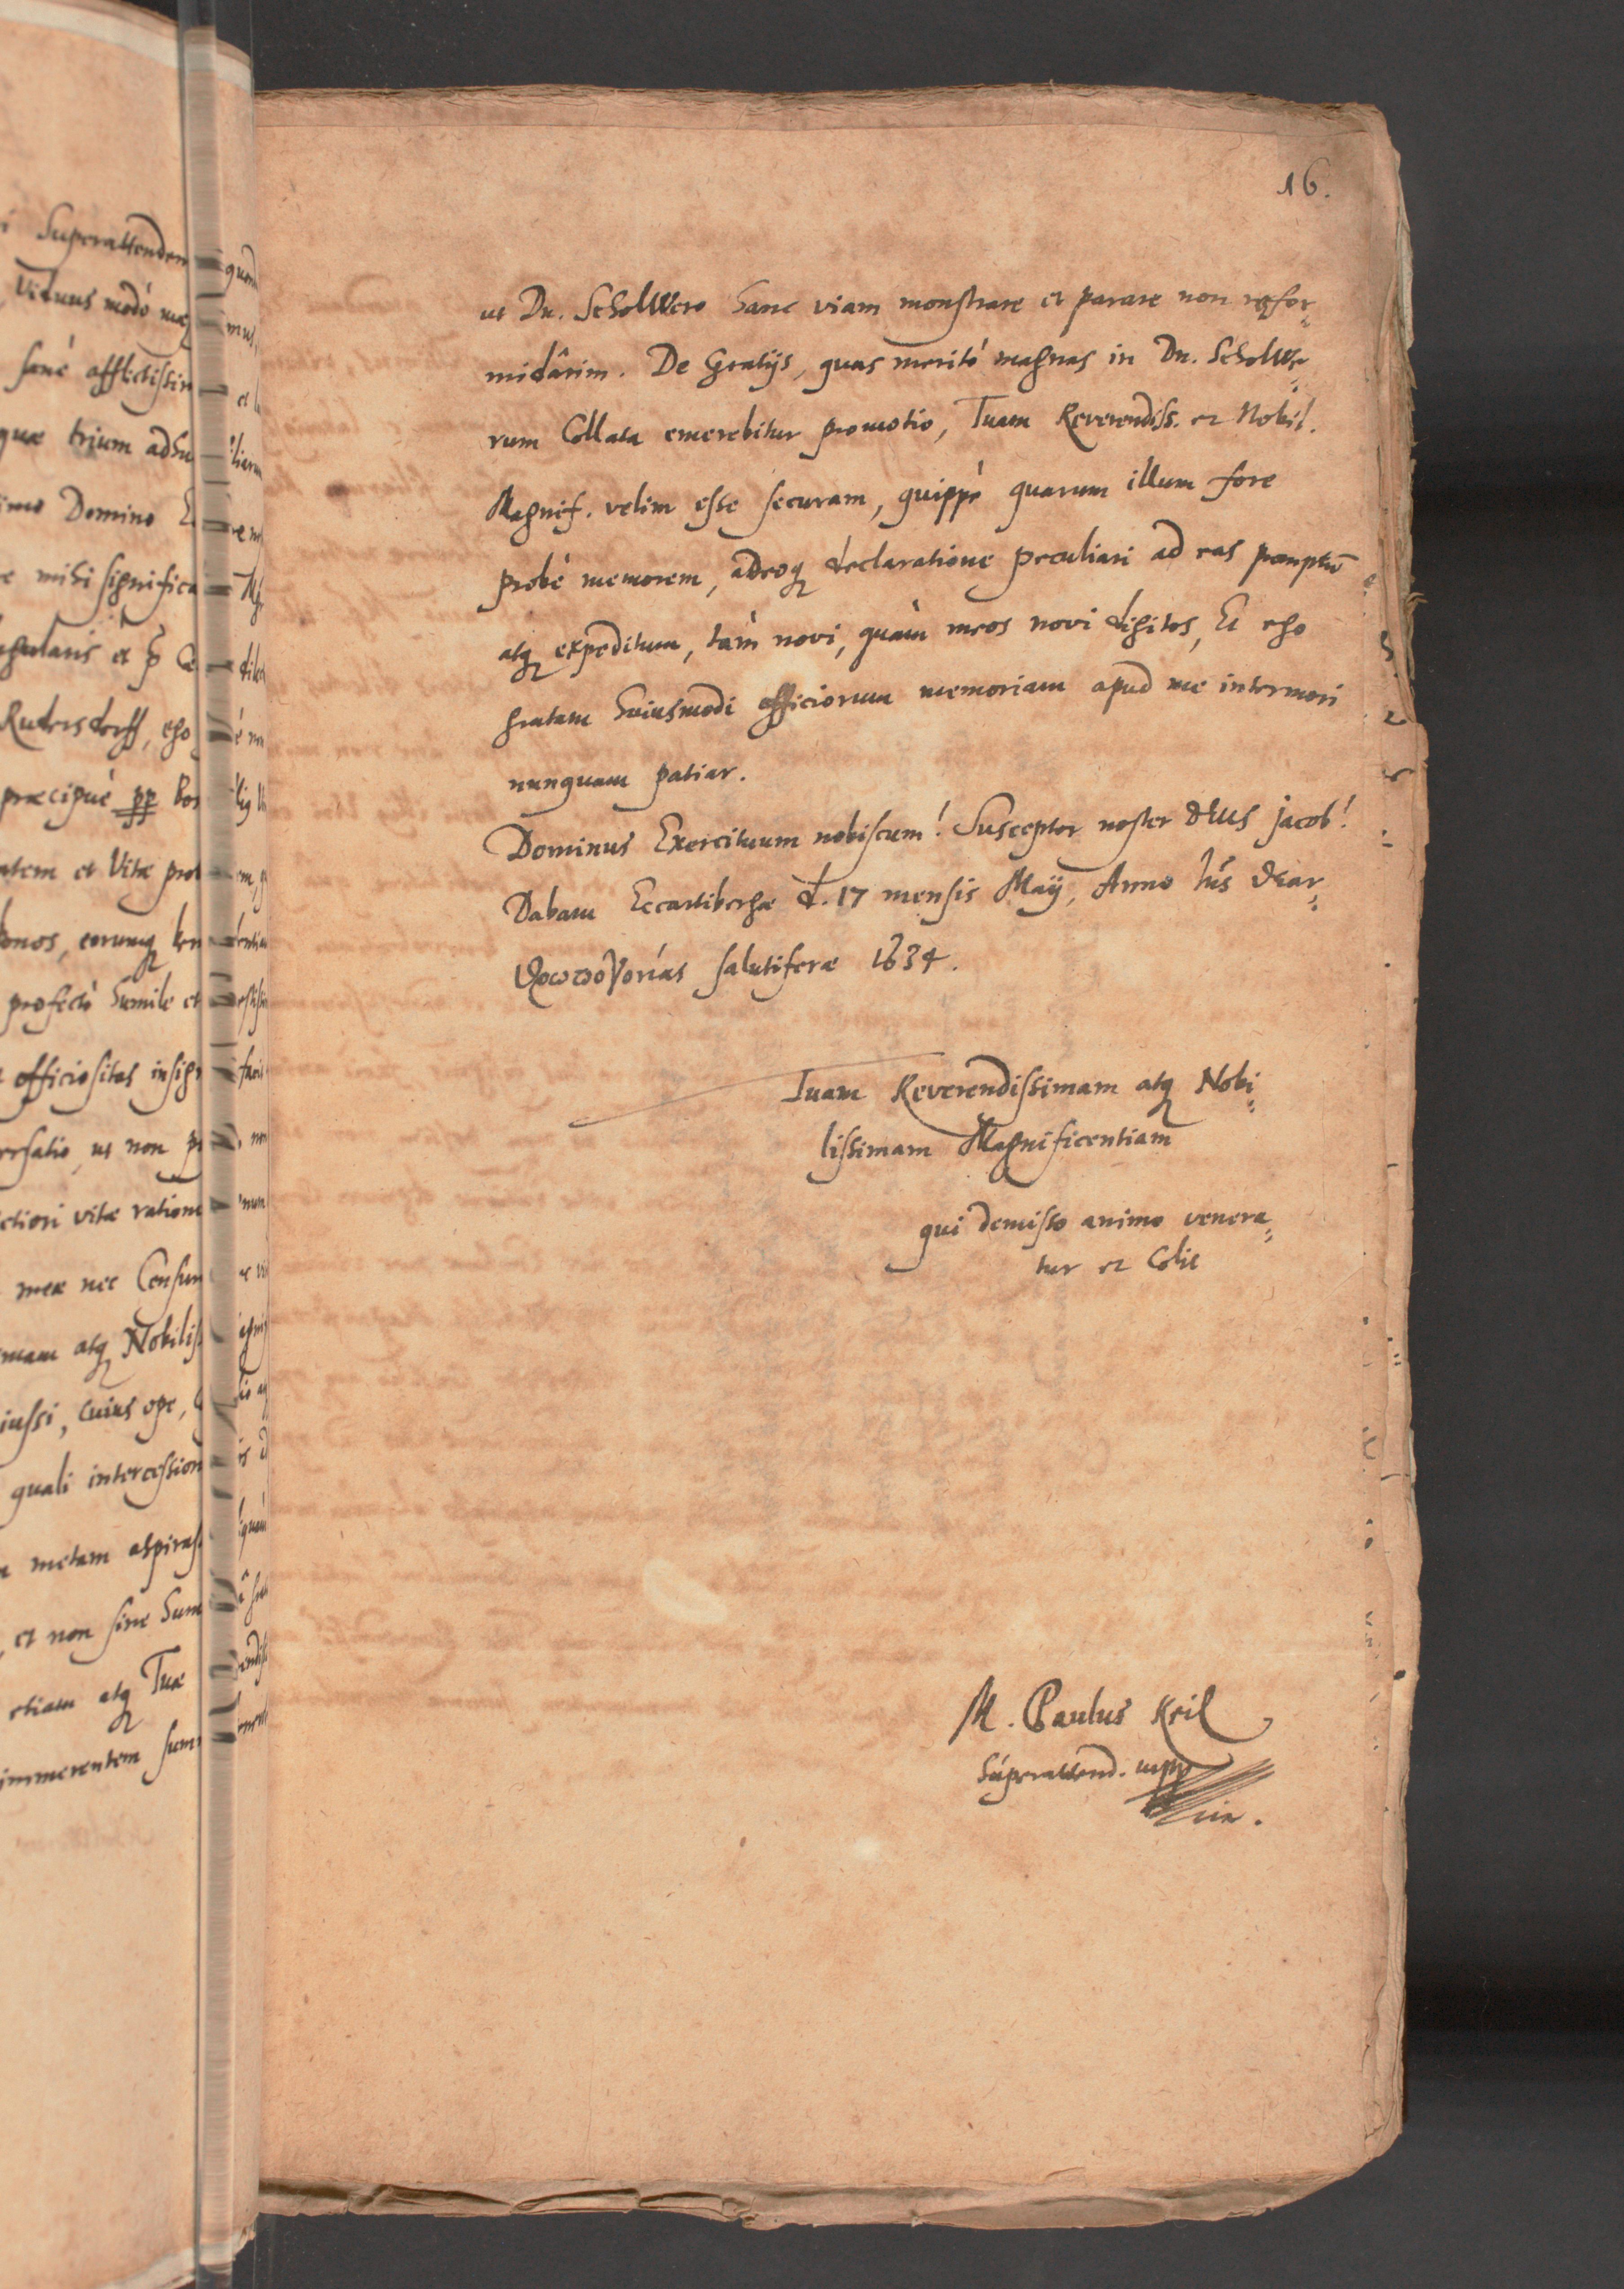 16.
ut Dn. Schollvero hanc viam monstrare et parare non refor=
midârim. De Gratijs, quas meritò magnas in Dn. Schollve=
rum Collata emerebitur promotio, Tuam Reverendiss. et Nobil.
Magnif. velim esse securam, quippè quarum illum fore
probè memorem, adeoq declaratione peculiari ad eas promptū
atq expeditum, tàm novi, quàm meos novi digitos, Et ego
gratam huiusmodi officiorum memoriam apud me intermori
nunquam patiar.
Dominus Exercituum nobiscum! Susceptor noster DEUS Jacob!
Dabam Eccartibergæ d. 17 mensis Maij, Anno
salutiferæ 1634.
Tuam Reverendissimam atq Nobi=
lissimam Magnificentiam
qui demisso animo venera=
tur et Colit
M. Paulus Keil
Superattend. mpp
Superattenden
Viduus modò
sanè afflictissim
quæ trium adhu
Domino
mihi significa
et
Rudersdorff, ego
præcipuè pp
et Vitæ
eorumq
profectò humile et
officiositas insig
ut non
vitæ ratione
meæ nec Censur
atq Nobilis
cuius ope,
quali intercession
metam aspiras
et non sine
etiam atq Tuæ
immerentem